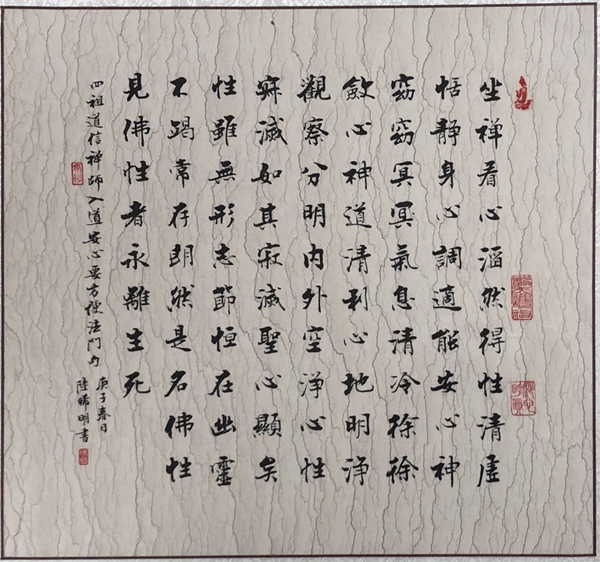 坐禅看心滔然得性清虚
恬静身心調適能安心神
窈窈冥冥氣息清冷徐徐
斂心神道清利心地明浄
觀察分明内外空浄心性
寂滅如其寂滅聖心顯矣
性雖無形志節恒在幽靈
不竭常存朗然是名佛性
見佛性者永離生死
四祖道信禅師入道安心要方便法門句
庚子春日
陸晞明書